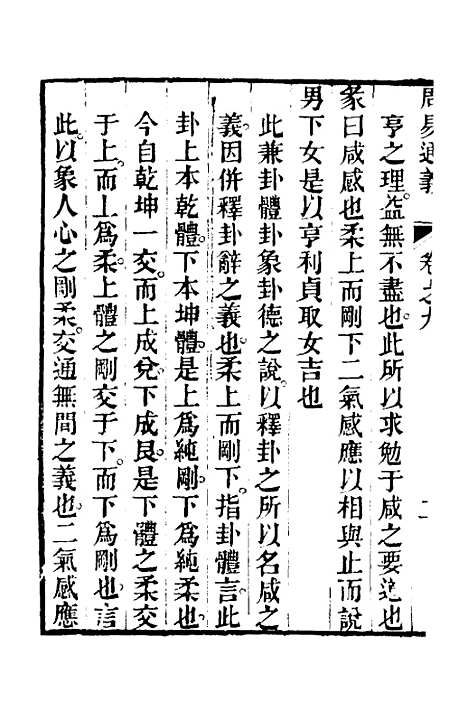 周易通義 卷之九 二
亨之理。益無不盡也。此所以求勉于咸之要道也
彖曰咸感也柔上而剛下二氣感應以相與止而說
男下女是以亨利貞取女吉也
此兼卦體卦象卦德之說。以釋卦之所以名咸之
義。因併釋卦辭之義也。柔上而剛下。指卦體言。此
卦上本乾體。下本坤體。是上爲純剛。下爲純柔也。
今自乾坤一交。而上成兌。下成艮。是下體之柔交
于上。而上爲柔。上體之剛交于下。而下爲剛也。言
此。以象人心之剛柔。交通無間之義也。二氣感應